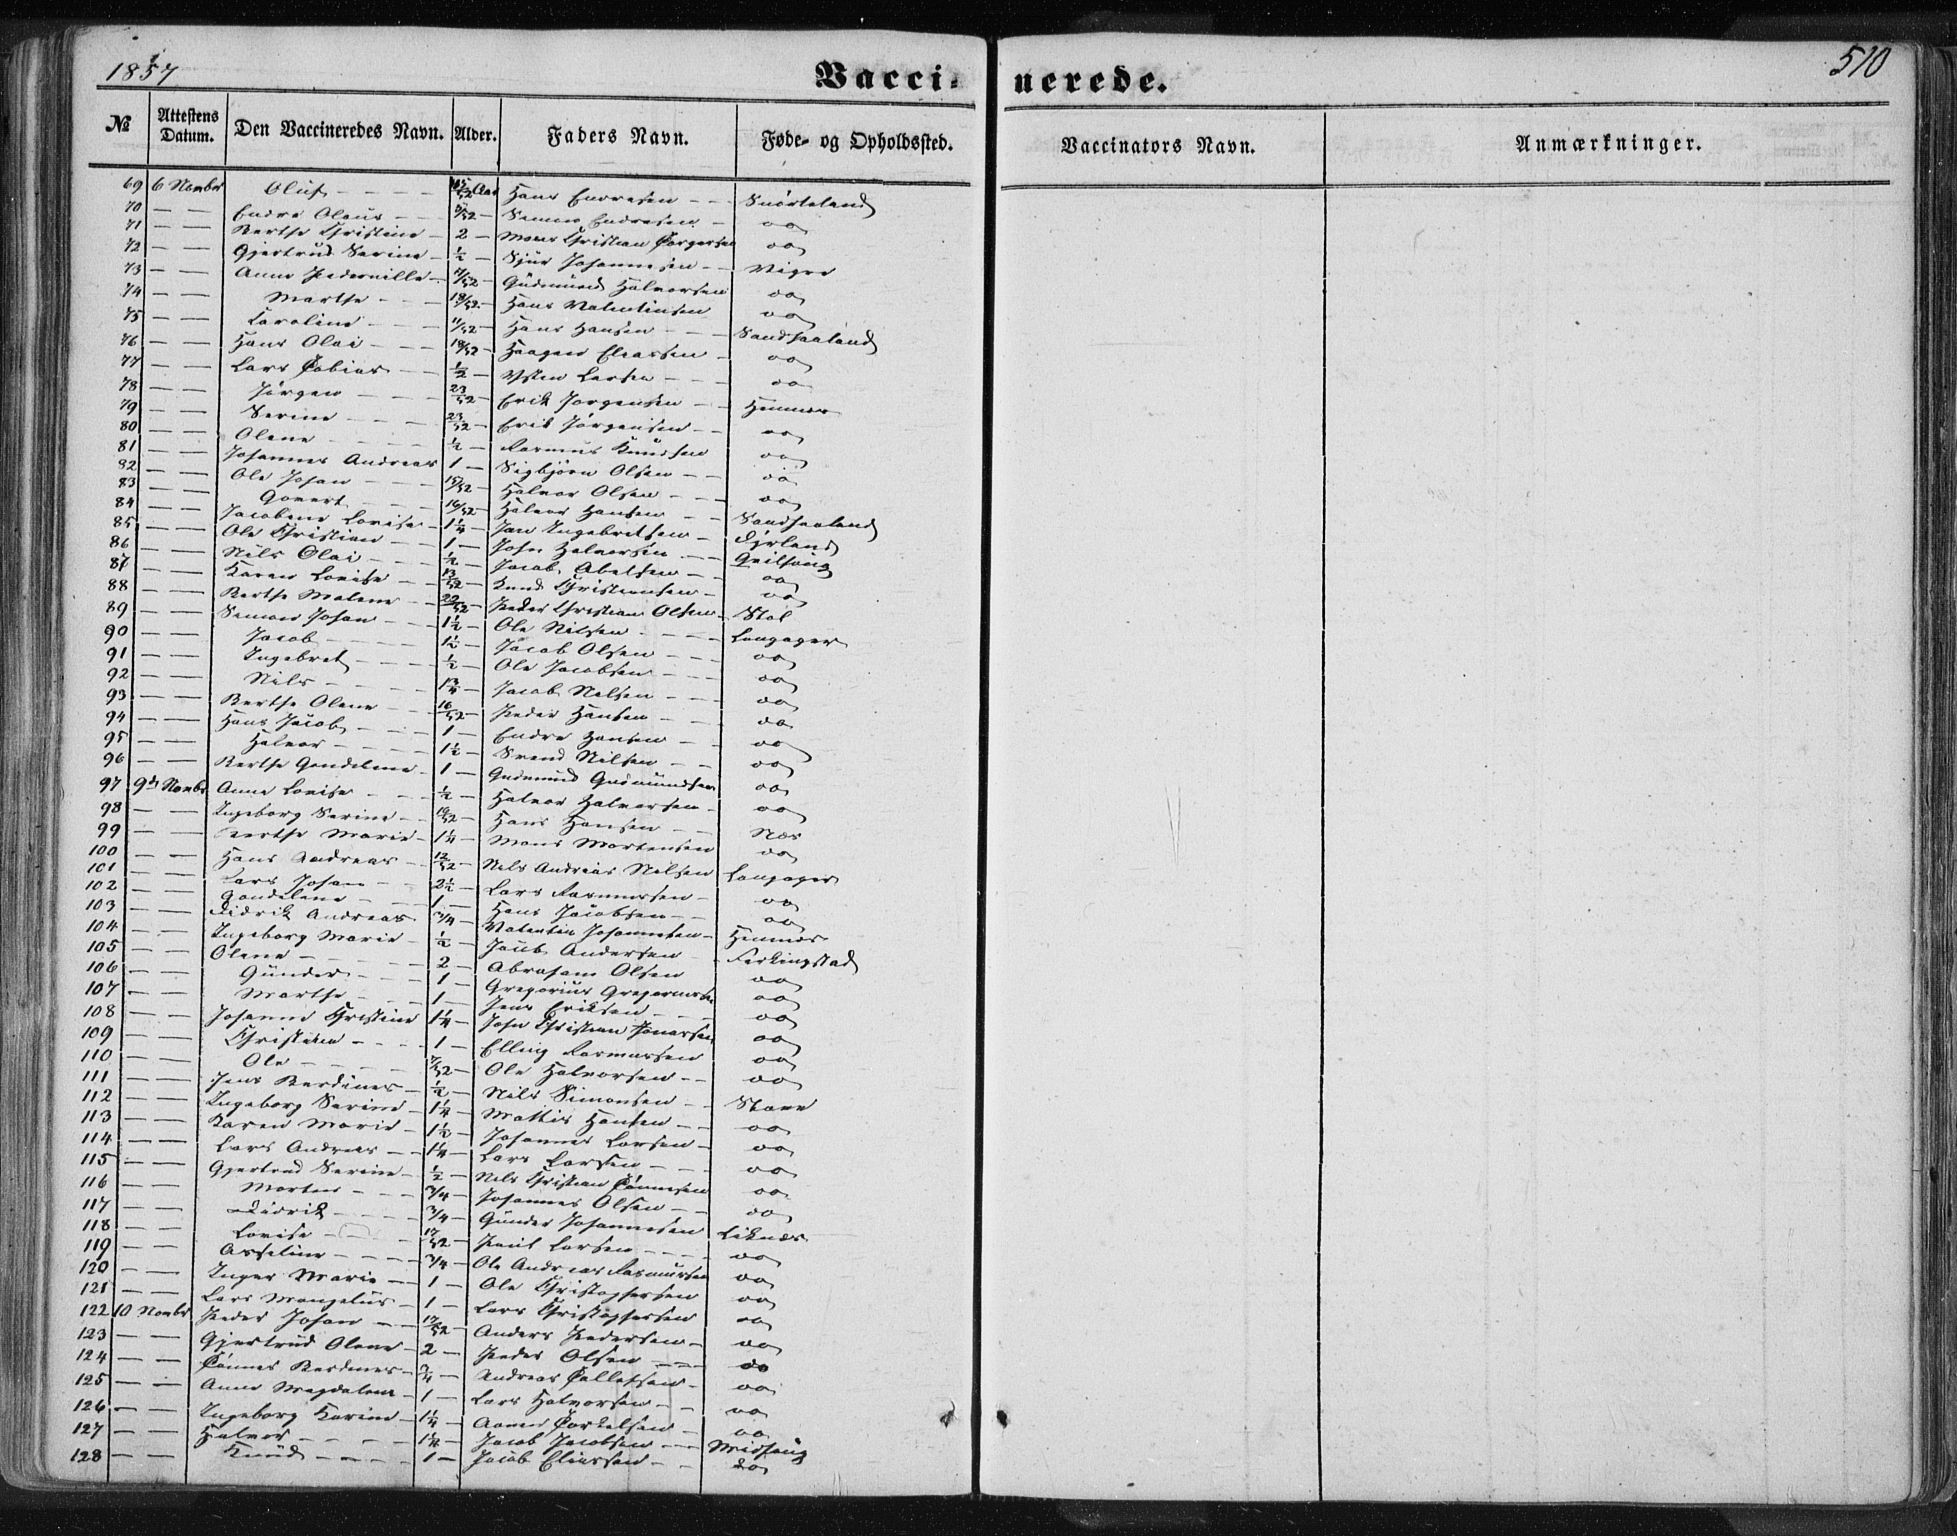 1857
Vaccinerede.
510
№ Attestens Datum. Den Vaccineredes Navn. Alder. Faders Navn. Føde- og Opholdssted. Vaccinators Navn. Anmærkninger.
69 6 Novbr Oluf - - - - Aar Hans Endresen - - Snörteland
70 — — Endre Olaus - - /52 — Simon Endresen - do
71 — — Berthe Christine - 2 — Christian Torgersen do
72 — — Gjertrud Serine - ½ — Sjur Johannesen - - Vigre
73 — — Anne Pedernille - /52 — Gudmund Halvorsen do
74 — — Marthe - - - 18/52 — Hans Valentinsen do
75 — — Karoline - - - 11/52 — Hans Hansen - - - Sandhaaland
76 — — Hans Olai - - - 18/52 — Haagen Eliassen - do
77 — — Lars Tobias - - ½ — Østen Larsen - - - do
78 — — Jørgen - - - - 23/52 — Erik Jørgensen - - Hemnes
79 — — Serine - - - - 23/52 — Erik Jørgensen - - do
80 — — Olene - - - - ½ — Rasmus Knudsen do
81 — — Johannes Andreas 1 — Sigbjørn Olsen - - do
82 — — Ole Johan - - - 15/52 — Halvor Olsen - - - do
83 — — Govert - - - - 16/52 — Halvor Hansen - - Sandhaaland
84 — — Jacobine Lovise - 1¼ — Jan Ingebretsen -
85 — — Ole Christian - - 1 — John Halvorsen - - Qvilhaug
86 — — Nils Olai - - - ½ — Jacob Abelsen - - do
87 — — Karen Lovise - - 13/52 — Knud Christiansen - do
88 — — Berthe Malene - - 22/52 — Peder Christian Olsen - Stol
89 — — Simon Johan - - 1½ — Ole Nilsen - - - - Langager
90 — — Jacob - - - - 1½ — Jacob Olsen - - - do
91 — — Ingebret - - - - ½ — Ole Jacobsen - - - do
92 — — Nils - - - - - 1¾ — Jacob Nilsen - - - do
93 — — Berthe Olene - - 16/52 — Peder Hansen - - - do
94 — — Hans Jacob - - - 1 — Endre Hansen - - - do
95 — — Halvor - - - - 1½ — Svend Nilsen - - do
96 — — Berthe Gundeline - 1 — Gudmund Gudmundsen do
97 9de Novbr Anne Lovise - - - ½ — Halvor Halvorsen - do
98 — — Ingeborg Serine - - 10/52 — Hans Hansen - - Næs
99 — — Berthe Marie - 1¼ — Mons Mortensen do
100 — — Hans Andreas - - 12/52 — Nils Andreas Nilsen Langager
101 — — Lars Johan - - 2½ — Lars Rasmussen - do
102 — — Gundeline - - - 1 — Hans Jacobsen - - do
103 — — Didrik Andreas 3/4 — Valentin Johannesen - Hemnes
104 — — Ingeborg Marie - ½ — Jacob Andersen - Ferkingstad
105 — — Olene - - - - 2 — Abraham Olsen do
106 — — Gunder - - - - 1 — Gregorius Gregoriussen do
107 — — Marthe - - - 1 — Jens Eriksen - - - do
108 — — Johanne Christine 1¼ — John Christian Jonassen do
109 — — Christine - - - - 1 — Elling Rasmussen do
110 — — Ole - - - - 7/52 — Ole Halvorsen - - do
111 — — Jens Berdines - - ½ — Nils Simonsen - - Stave
112 — — Ingeborg Serine - 1¼ — Mattis Hansen - - do
113 — — Karen Marie - 1½ — Johannes Larsen - do
114 — — Lars Andreas - - 1¼ — Lars Larsen - - - do
115 — — Gjertrud Serine - ½ — Nils Christian Tønnesen do
116 — — Morten - - - 3/4 — Johannes Olsen - - do
117 — — Didrik - - - - 3/4 — Gunder Johannesen Liknæs
118 — — Lovise - - - - 17/52 — Poul Larsen - - - - do
119 — — Asseline - - - - 3/4 — Ole Andreas Rasmussen do
120 — — Inger Marie - - 1 — Ole Christophersen do
121 — — Lars Mangelus - 1 — Lars Christophersen do
122 10 Novbr Peder Johan - - 17/52 — Anders Pedersen - do
123 — — Gjertrud Olene - 2 — Peder Olsen - - - do
124 — — Tønnes Berdines - ¾ — Andreas Tollefsen - do
125 — — Anne Magdalene - 1 — Lars Halvorsen - - do
126 — — Ingeborg Karine - 1¼ — Torkelsen - do
127 — — Halvor - - - - 1¼ — Jacob Jacobsen - - - Midhaug
128 — — Knud - - - - 1 — Jacob Eliassen - - do